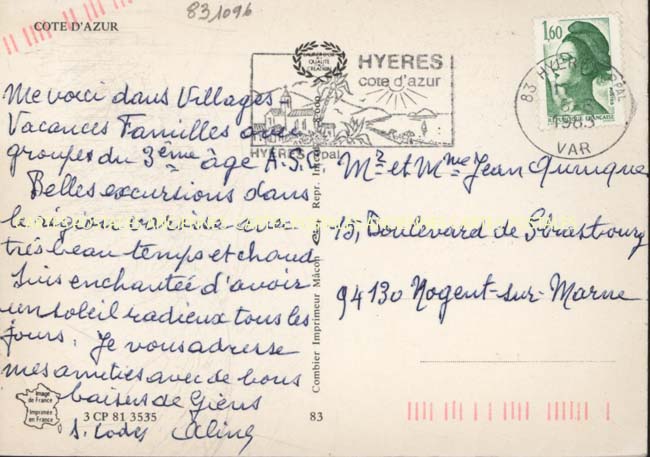 831096
COTE D'AZUR
LABEL
QUALITE
CREATION
HYERES
cote d'azur
HYERES (pal)
1,60
REPUBLIQUE FRANÇAISE
83 HYERES PPAL
1983
VAR
Me voici dans Villages
Vacances Familles avec
groupes du 3ème âge A.S.
Belles excursions dans
la région varoise avec
très beau temps et chaud
Suis enchantée d'avoir
un soleil radieux tous les
jours. Je vous adresse
mes amitiés avec de bons
baisers de Giens
Aline
Mr et Mme Jean
15, Boulevard de Strasbourg
94130 Nogent-sur-Marne
Combier Imprimeur Mâcon
Repr.
Image
de France
Imprimée
en France
3 CP 81 3535
83